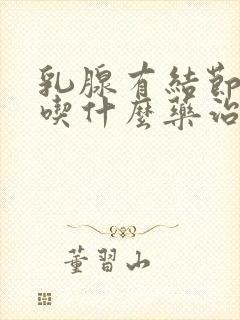 乳腺有結節
喫什麼藥治
董習山